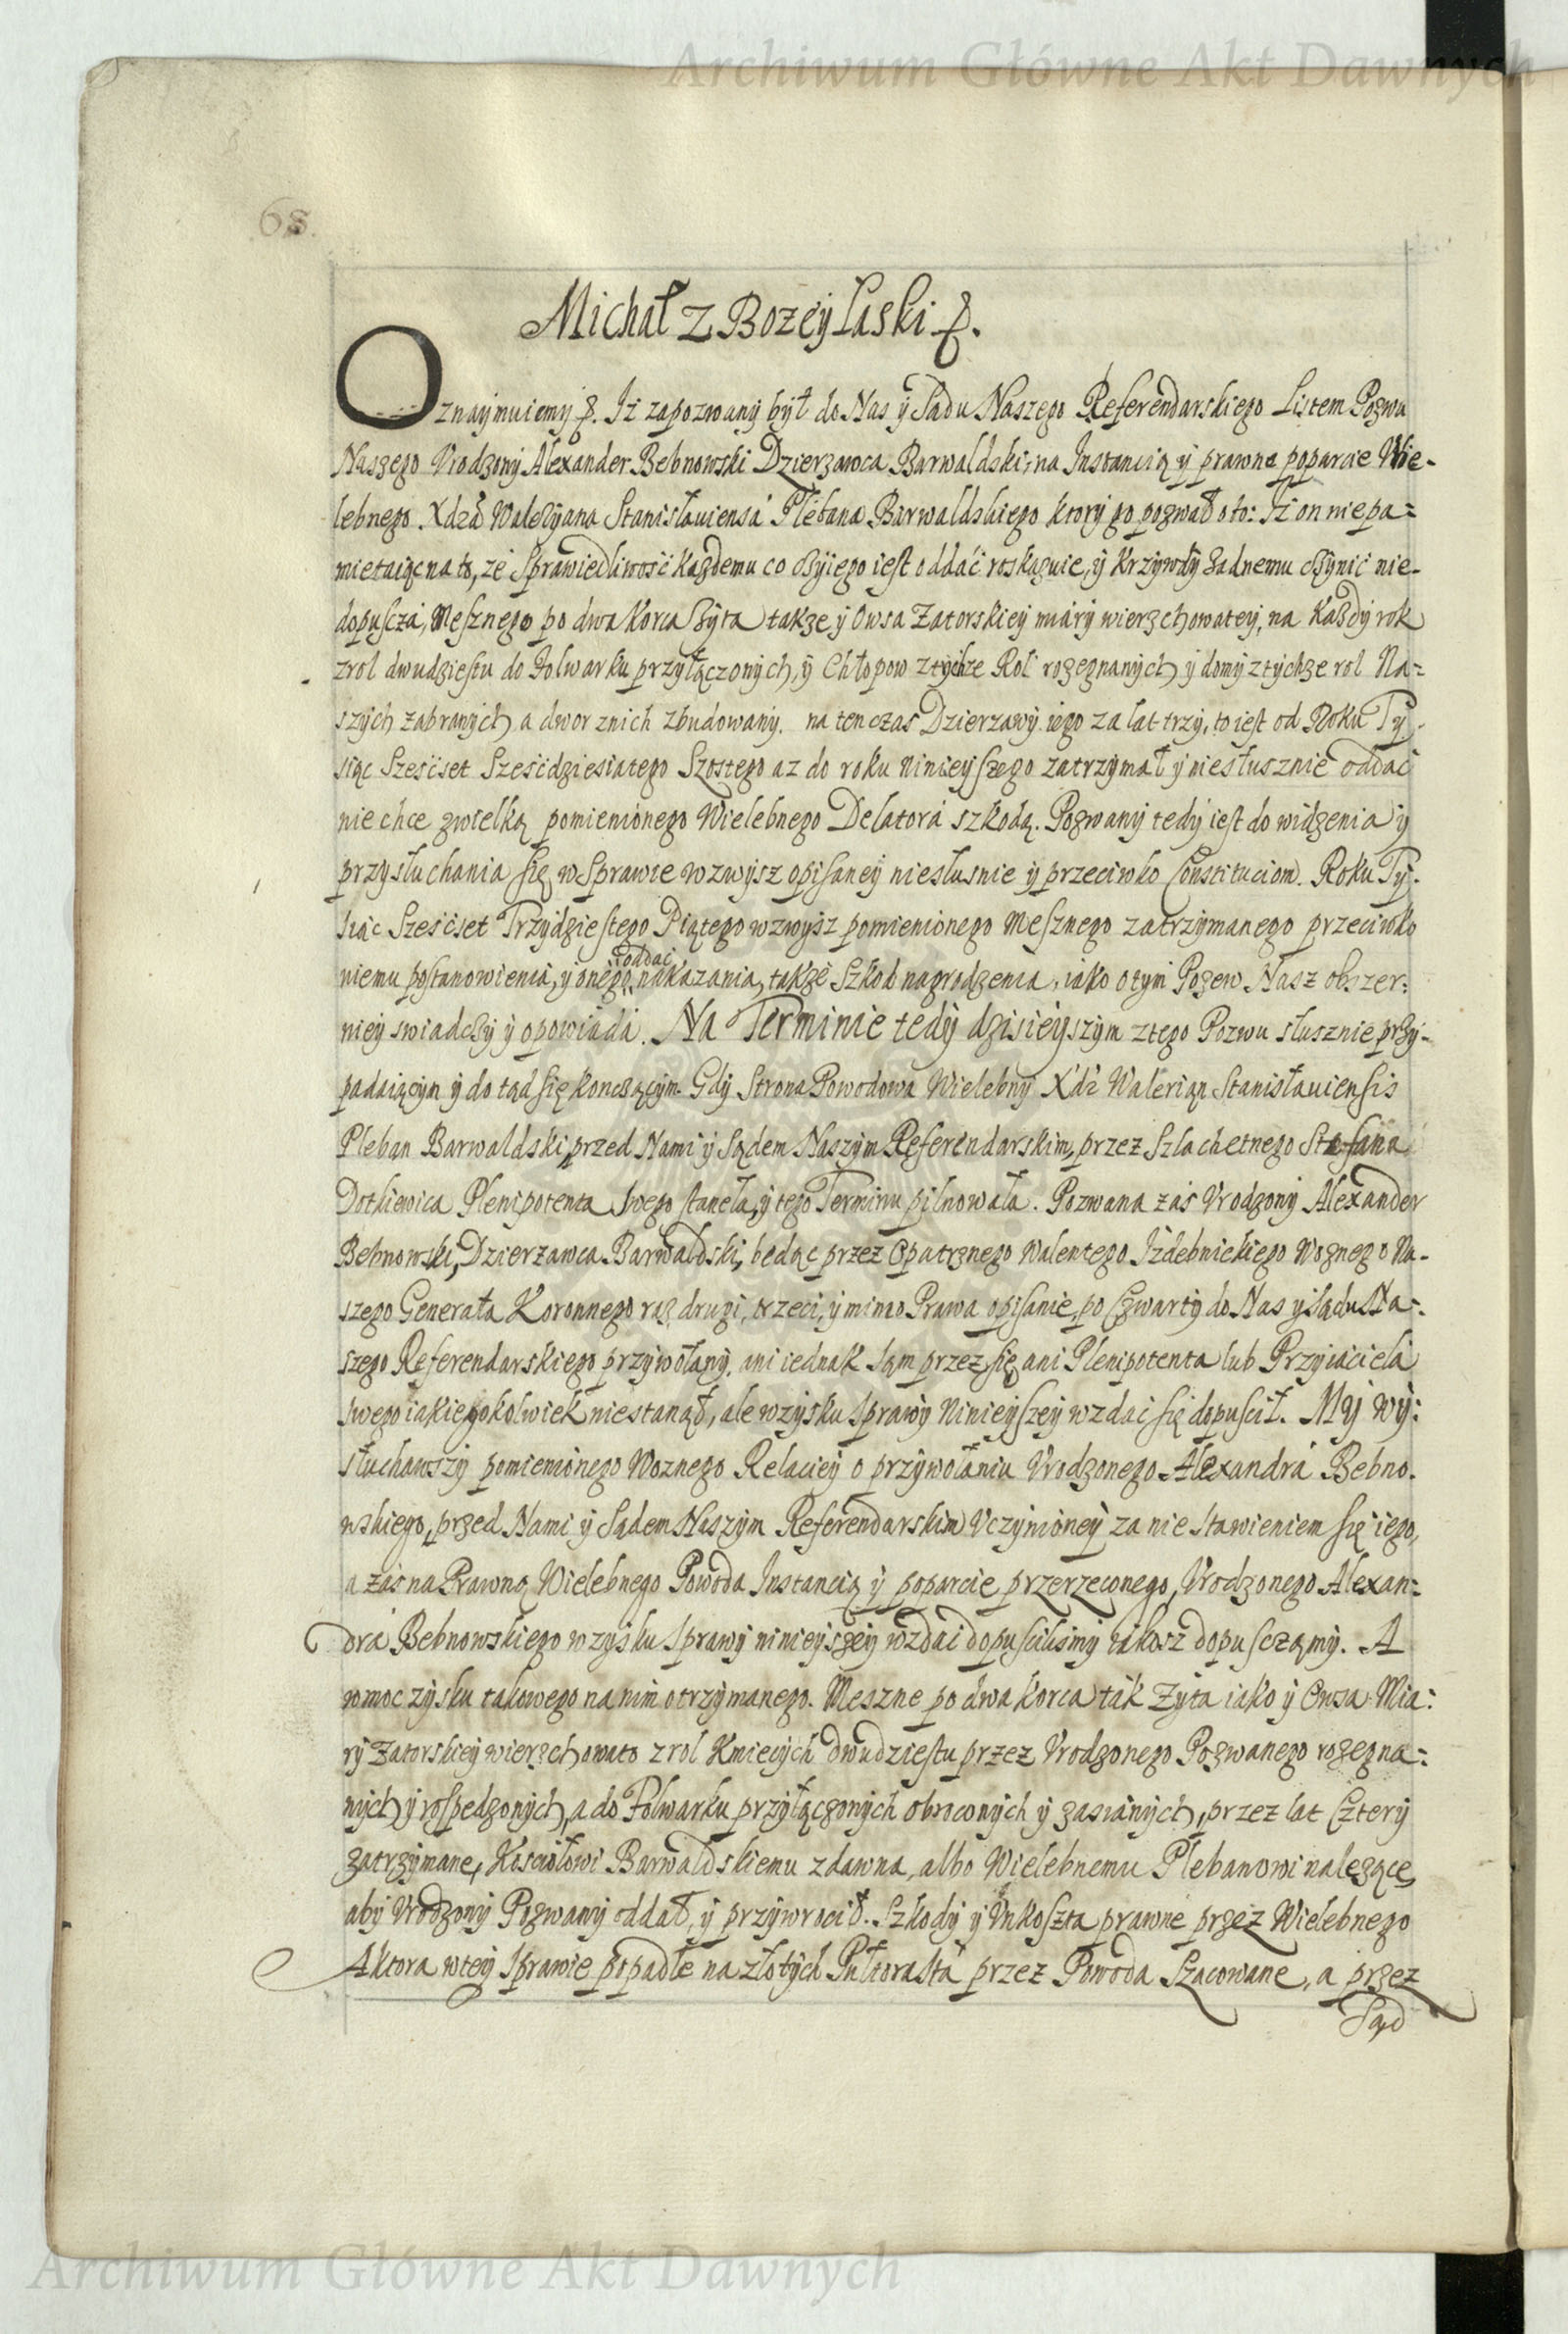 Archiwum Główne Akt Dawnych
68.
Michał Z Bozey Łaski &.
Oznaymuiemy &. Iż zapozwany był do Nas y Sądu Naszego Referendarskiego Listem Pozwu
Naszego Vrodzony Alexander Bebnowski Dzierzawca Barwaldski, na Instancią y prawne poparcie Wie-
lebnego Xdza Waleryana Stanisłauiensa Plebana Barwaldskiego ktory go pozwał oto: Iż on niepa=
mietaiąc na to, że Sprawiedliwość każdemu co czyiego iest oddać roskazuie, y Krzywdy żadnemu czynić nie-
dopuscza, Mesznego po dwa Korca Żyta także y Owsa Zatorskiey miary wierzchowatey, na Każdy rok
z rol dwudziestu do Folwarku przyłączonych, y Chłopow z tychże Rol rozegnanych y domy z tychże rol Na=
szych zabranych a dwor znich zbudowany. na ten czas Dzierzawy iego za lat trzy, to iest od Roku Ty-
siąc Szesćset Szescdziesiatego Szostego az do roku ninieyszego zatrzymał y niesłusznie oddać
nie chce zwielką pomienionego Wielebnego Delatora szkodą. Pozwany tedy iest do widzenia y
przysłuchania się w Sprawie wzwysz opisaney niesłusnie y przeciwko Constituciom. Roku Ty-
siąc Sześćset Trzydziestego Piątego wzwysz pomienionego Mesznego zatrzymanego przeciwko
niemu postanowienia, y onego oddać nakazania, także Szkod nagrodzenia, iako o tym Pozew Nasz obszer=
niey swiadczy y opowiada. Na Terminie tedy dzisieyszym z tego Pozwu słusznie przy-
padaiącym y do tąd się konczącym. Gdy Strona Powodowa Wielebny Xdz Walerian Stanisłauiensis
Pleban Barwaldski, przed Nami y Sądem Naszym Referendarskim, przez Szlachetnego Stefana
Dotkiewica Plenipotenta swego staneła, y tego Terminu pilnowała. Pozwana zaś Vrodzony Alexander
Bebnowski, Dzierzawca Barwaldski, będąc przez Opatrznego Walentego Iżdebnickiego Woznego Na-
szego Generała Koronnego raz, drugi, trzeci, y mimo Prawa opisanie, po Czwarty do Nas y Sądu Na=
szego Referendarskiego przywołany, ani iednak sąm przez się ani Plenipotenta lub Przyiaciela
swego iakiegokolwiek niestanął, ale w zysku sprawy Ninieyszey wzdać się dopuscił. My wy:
słuchawszy pomienionego Woznego Relaciey o przywołaniu Vrodzonego Alexandra Bebno-
wskiego, przed Nami y Sądem Naszym Referendarskim Vczynioney za nie stawieniem się iego,
a zaś na Prawną Wielebnego Powoda Instancią y poparcie przerzeczonego, Vrodzonego Alexan=
dra Bebnowskiego w zysku sprawy ninieyszey wzdać dopusciliśmy iakosz dopusczamy. A
w moc zysku takowego na nim otrzymanego. Meszne po dwa korca tak Zyta iako y Owsa Mia:
ry Zatorskiey wierzchowato z rol Kmiecych dwudziestu przez Vrodzonego Pozwanego rozegna=
nych y rospedzonych, a do Folwarku przyłączonych obroconych y zasianych, przez lat Cztery
zatrzymane, Kościołowi Barwaldskiemu zdawna, albo Wielebnemu Plebanowi należące,
aby Vrodzony Pozwany oddał, y przywrocił. Szkody y Vnkoszta prawne przez Wielebnego
Aktora wtey sprawie popadłe na złotych Puttorasta przez Powoda Szacowane, a przez
Sąd
Archiwum Główne Akt Dawnych